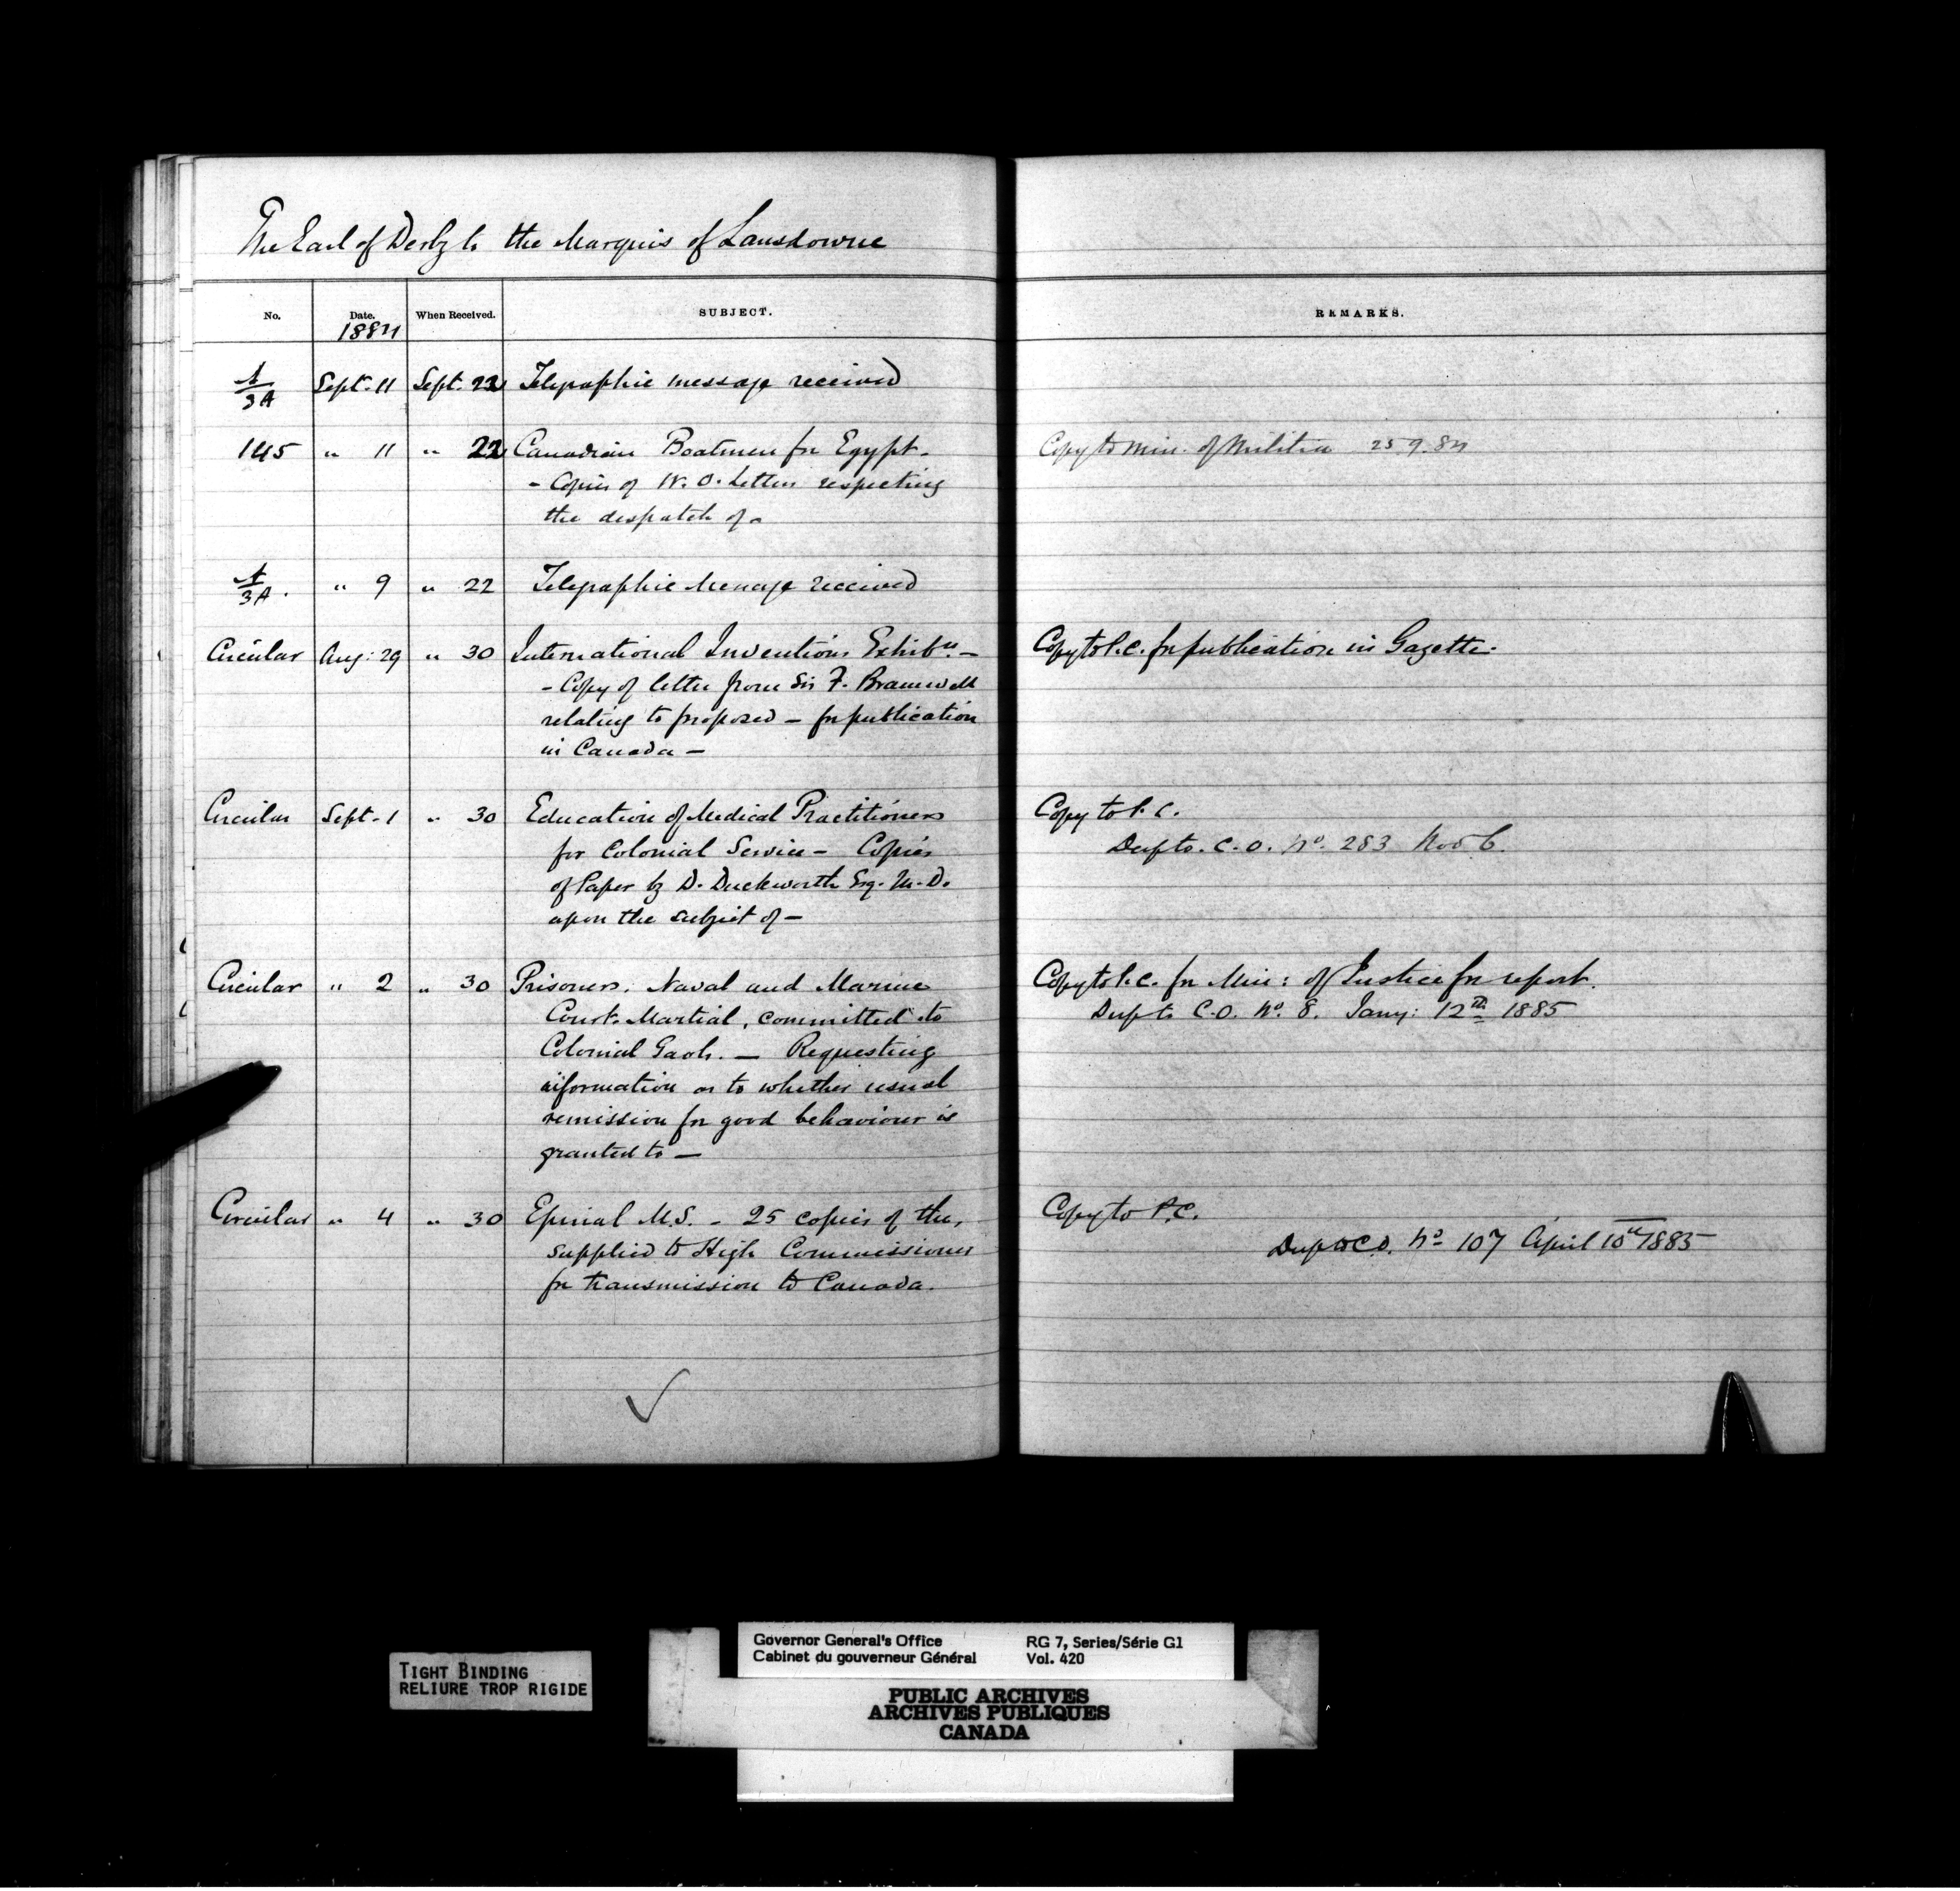 The Earl of Derby to the Marquis of Lansdowne
No. Date. When Received. SUBJECT. REMARKS.
1884
A/3A Sept. 11 Sept. 22 Telegraphic message received
145 " 11 " 22 Canadian Boatmen for Egypt - Copy to Min. of Militia 25.9.84
- Copies of W.O. Letters respecting
the despatch of -
A/3A. " 9 " 22 Telegraphic Message received
Circular Aug: 29 " 30 International Inventions Exhibn. - Copy to P.C. for publication in Gazette.
- Copy of letter from Sir F. Bramwell
relating to proposed - for publication
in Canada -
Circular Sept. 1 " 30 Education of Medical Practitioners Copy to P.C.
for Colonial Service - Copies Desp to. C.O. No. 283 Nov 6.
of Paper by D. Duckworth Esq. M.D.
upon the subject of -
Circular " 2 " 30 Prisoners. Naval and Marine Copy to P.C. for Min: of Justice for report.
Courts Martial, committed to Desp to C.O. No. 8. Jany: 12th 1885
Colonial Gaols. - Requesting
information as to whether usual
remission for good behaviour is
granted to -
Circular " 4 " 30 Epinal M.S. - 25 copies of the, Copy to P.C.
supplied to High Commissioner Desp to C.O. No 107 April 10th 1885
for transmission to Canada.
TIGHT BINDING
RELIURE TROP RIGIDE
Governor General's Office RG 7, Series/Série G1
Cabinet du gouverneur Général Vol. 420
PUBLIC ARCHIVES
ARCHIVES PUBLIQUES
CANADA